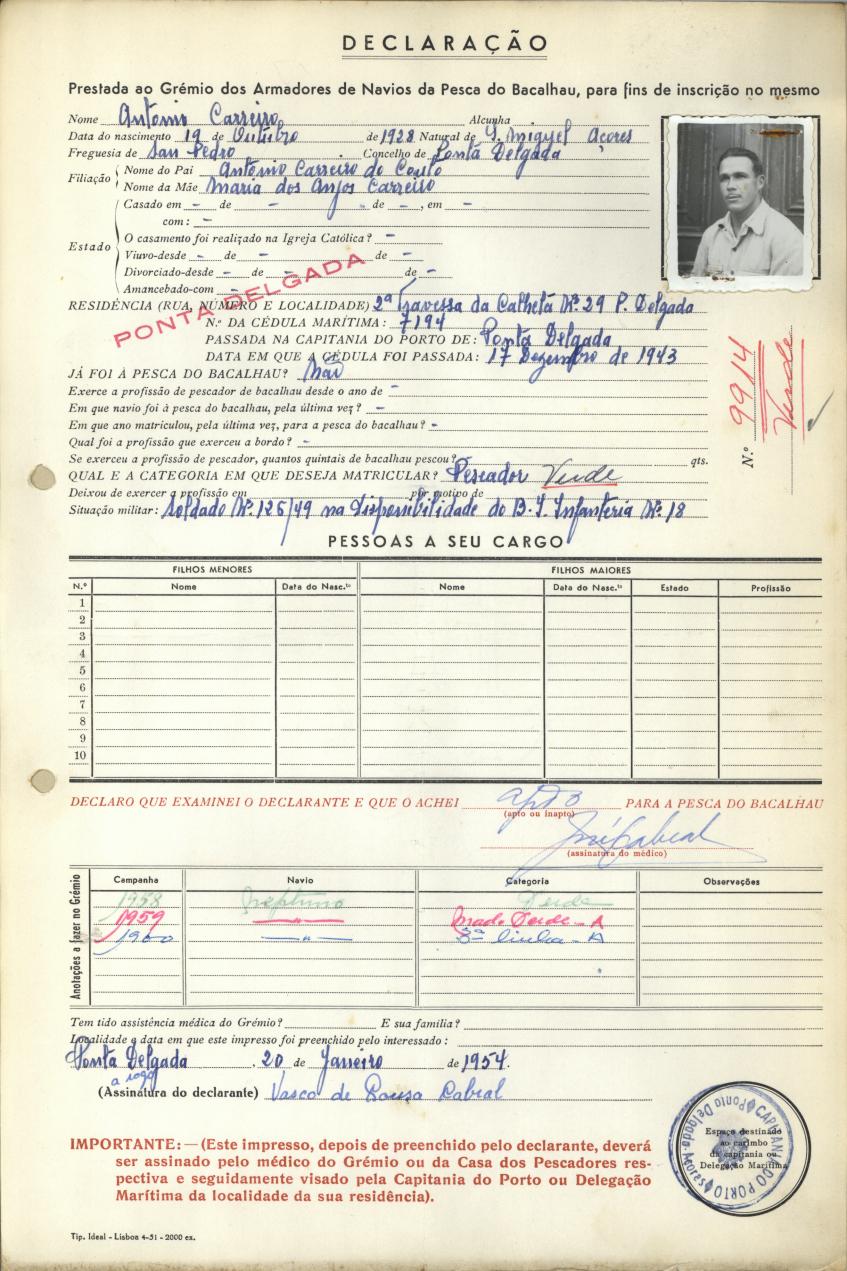 DECLARAÇÃO
Prestada ao Grémio dos Armadores de Navios da Pesca do Bacalhau, para fins de inscrição no mesmo
Nome Antonio Carreiro Alcunha
Data do nascimento 19 de Outubro de 1928 Natural de S. Miguel Açores
Freguesia de San Pedro Concelho de Ponta Delgada
Filiação
Nome do Pai Antonio Carreiro do Couto
Nome da Mãe Maria dos Anjos Carreiro
Estado
Casado em - de - de -, em -
com: -
O casamento foi realizado na Igreja Católica? -
Viuvo-desde - de - de -
Divorciado-desde - de - de -
Amancebado-com -
PONTA DELGADA
RESIDÊNCIA (RUA, NÚMERO E LOCALIDADE) 2ª Travessa da Calheta Nº 29 P. Delgada
N.º DA CÉDULA MARÍTIMA: 7194
PASSADA NA CAPITANIA DO PORTO DE: Ponta Delgada
DATA EM QUE A CÉDULA FOI PASSADA: 17 Dezembro de 1943
JÁ FOI À PESCA DO BACALHAU? Não
Exerce a profissão de pescador de bacalhau desde o ano de -
Em que navio foi à pesca do bacalhau, pela última vez? -
Em que ano matriculou, pela última vez, para a pesca do bacalhau? -
Qual foi a profissão que exerceu a bordo? -
Se exerceu a profissão de pescador, quantos quintais de bacalhau pescou? qts.
QUAL E A CATEGORIA EM QUE DESEJA MATRICULAR? Pescador Verde
Deixou de exercer a profissão em por motivo de
Situação militar: Soldado Nº 126/49 na Disponibilidade do B. I. Infanteria Nº 18
N.º 9914
Verde
PESSOAS A SEU CARGO
FILHOS MENORES FILHOS MAIORES
N.º Nome Data do Nasc.to Nome Data do Nasc.to Estado Profissão
1
2
3
4
5
6
7
8
9
10
DECLARO QUE EXAMINEI O DECLARANTE E QUE O ACHEI apto PARA A PESCA DO BACALHAU
(apto ou inapto)
(assinatura do médico)
Anotações a fazer no Grémio
Campanha Navio Categoria Observações
1958 Neptuno Verde
1959 — " — Verde - A
1960 — " — 3ª linha - A
Tem tido assistência médica do Grémio? E sua família?
Localidade e data em que este impresso foi preenchido pelo interessado:
Ponta Delgada, 20 de Janeiro de 1954.
a rogo
(Assinatura do declarante) Vasco de Sousa Cabral
IMPORTANTE: — (Este impresso, depois de preenchido pelo declarante, deverá
ser assinado pelo médico do Grémio ou da Casa dos Pescadores res-
pectiva e seguidamente visado pela Capitania do Porto ou Delegação
Marítima da localidade da sua residência).
CAPITANIA DO PORTO Ponta Delgada - Açores
Espaço destinado
ao carimbo
da capitania ou
Delegação Marítima
Tip. Ideal - Lisboa 4-51 - 2000 ex.